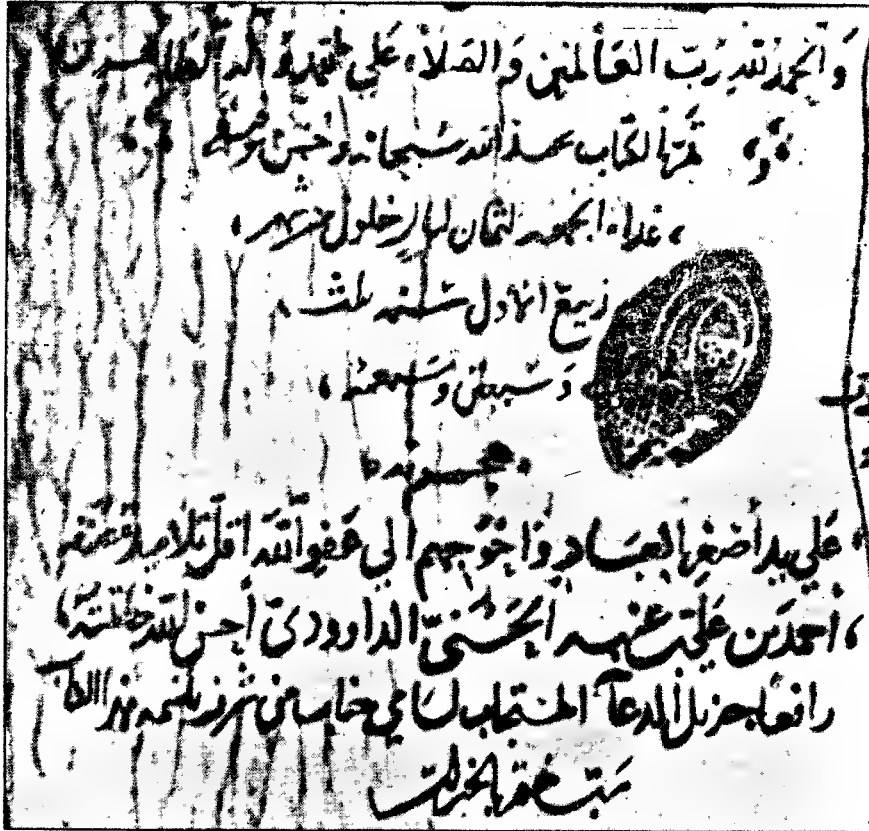 والحمد لله رب العالمين والصلاة على محمد وآله الطاهرين
تم الكتاب بحمد الله سبحانه وحسن توفيقه
غداة الجمعة لثمان ليال خلون من شهر
ربيع الأول سنة ثلث
وسبعين وسبعمئة
على يد أضعف العباد وأحوجهم إلى عفو الله أقل تلاميذ مصنفه
أحمد بن علي بن عنبه الحسني الداوودي أحسن الله خاتمته
رافعا جزيل الدعاء المستجاب لسامي جناب من شرف بلثمه هذا الكتاب